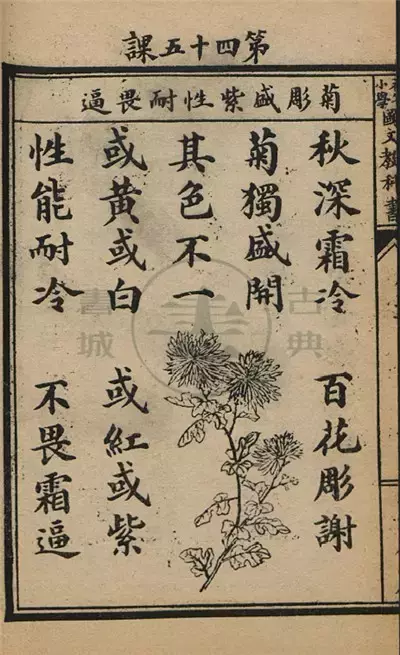 第四十五課
小學國文教科書
菊彫盛紫性耐畏逼
秋深霜冷 百花彫謝
菊獨盛開
其色不一
或黃或白 或紅或紫
性能耐冷 不畏霜逼
古典書城